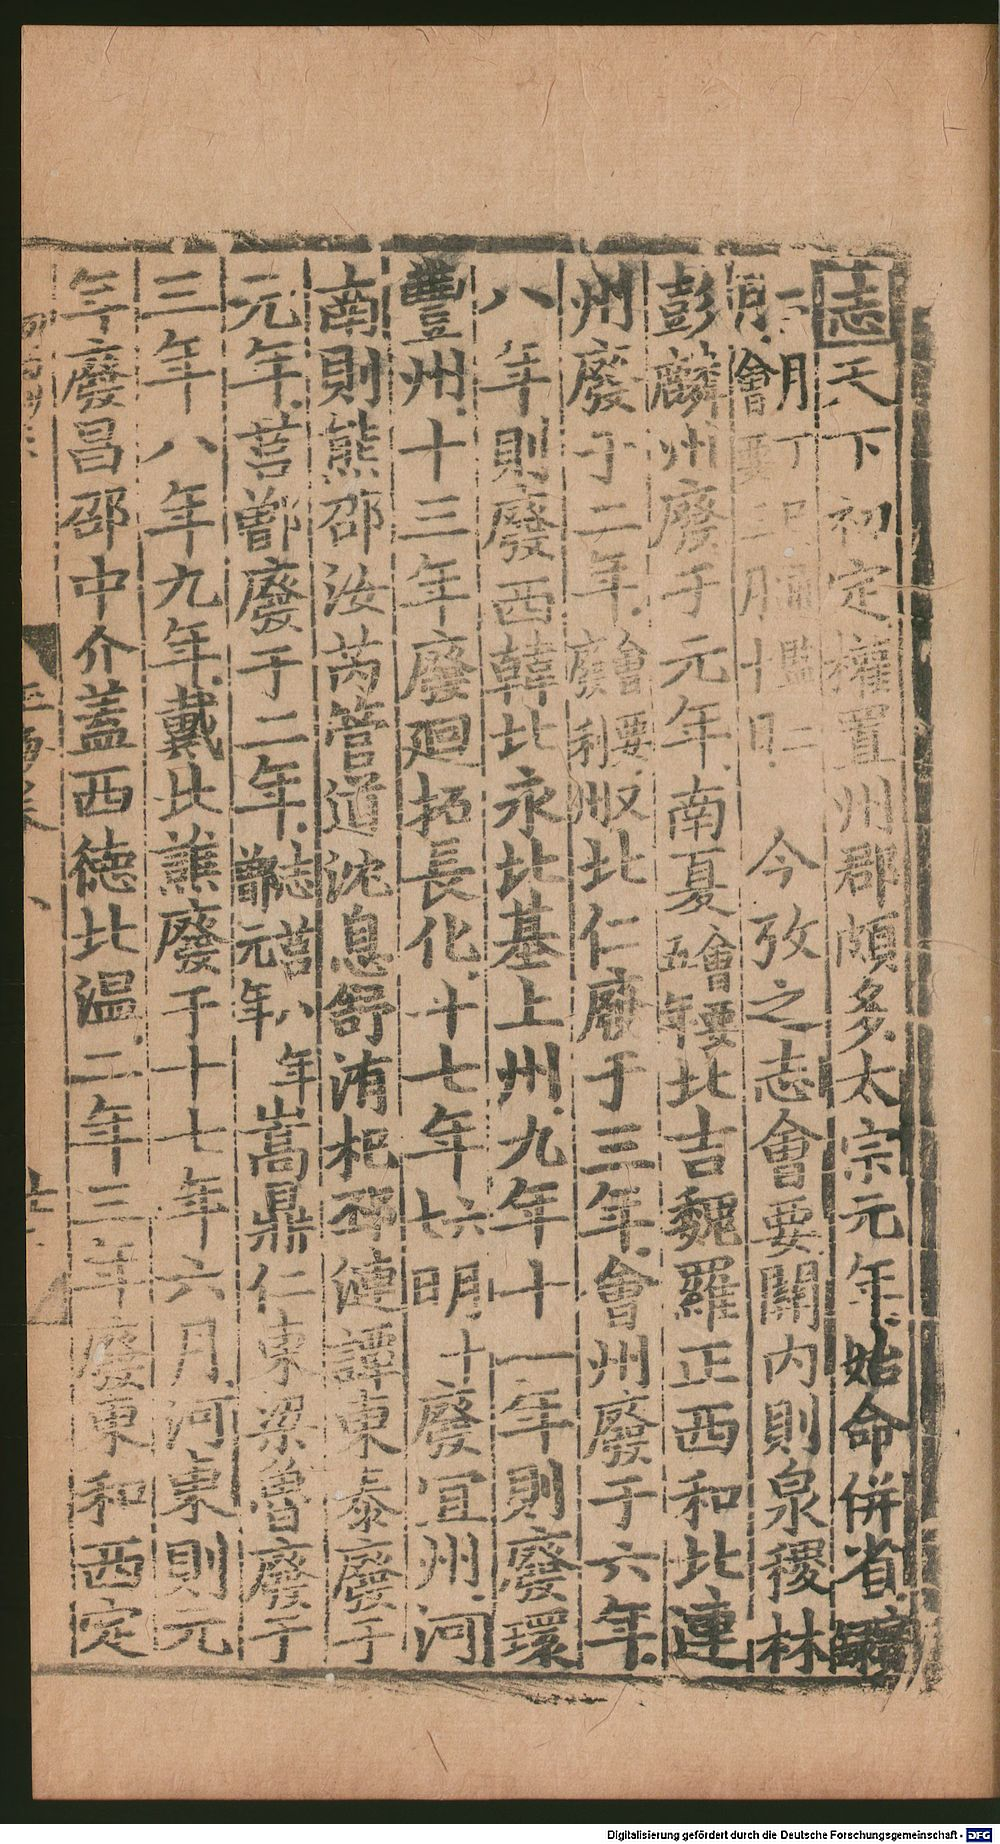 志天下初定權置州郡頗多太宗元年始命併省
二月丁巳通鑑二月會要二月十日今攷之志會要關内則泉稷林
彭麟州廢于元年南夏會要五年北吉魏羅正西和北連
州廢于二年會要廢利州北仁廢于三年會州廢于六年
八年則廢西韓北永北基上州九年十一年則廢環
豐州十三年廢廻拓長化十七年六明七十廢宜州河
南則熊邵汝芮管道沈息舒洧杞邳漣譚東泰廢于
元年莒鄫廢于二年志莒八年鄫元年嵩鼎仁東梁魯廢于
三年八年九年戴北譙廢于十七年六月河東則元
年廢昌邵中介蓋西德北温二年三年廢東和西定
Digitalisierung gefördert durch die Deutsche Forschungsgemeinschaft - DFG